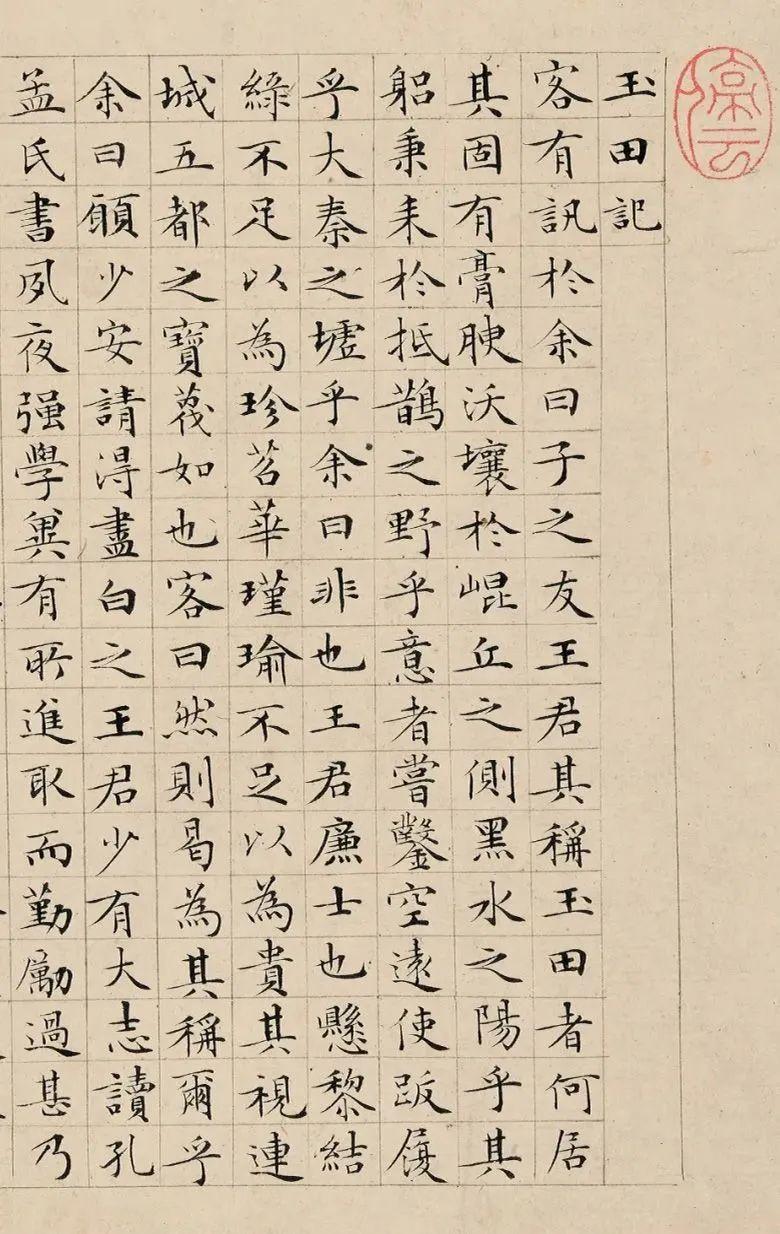 玉田記
客有訊於余曰子之友王君其稱玉田者何居
其固有膏腴沃壤於崐丘之側黑水之陽乎其
躳秉耒於抵鵲之野乎意者嘗鑿空遠使跋履
乎大秦之墟乎余曰非也王君廉士也懸黎結
綠不足以為珍苕華瑾瑜不足以為貴其視連
城五都之寶蔑如也客曰然則曷為其稱爾乎
余曰願少安請得盡白之王君少有大志讀孔
孟氏書夙夜强學兾有所進取而勤勵過甚乃